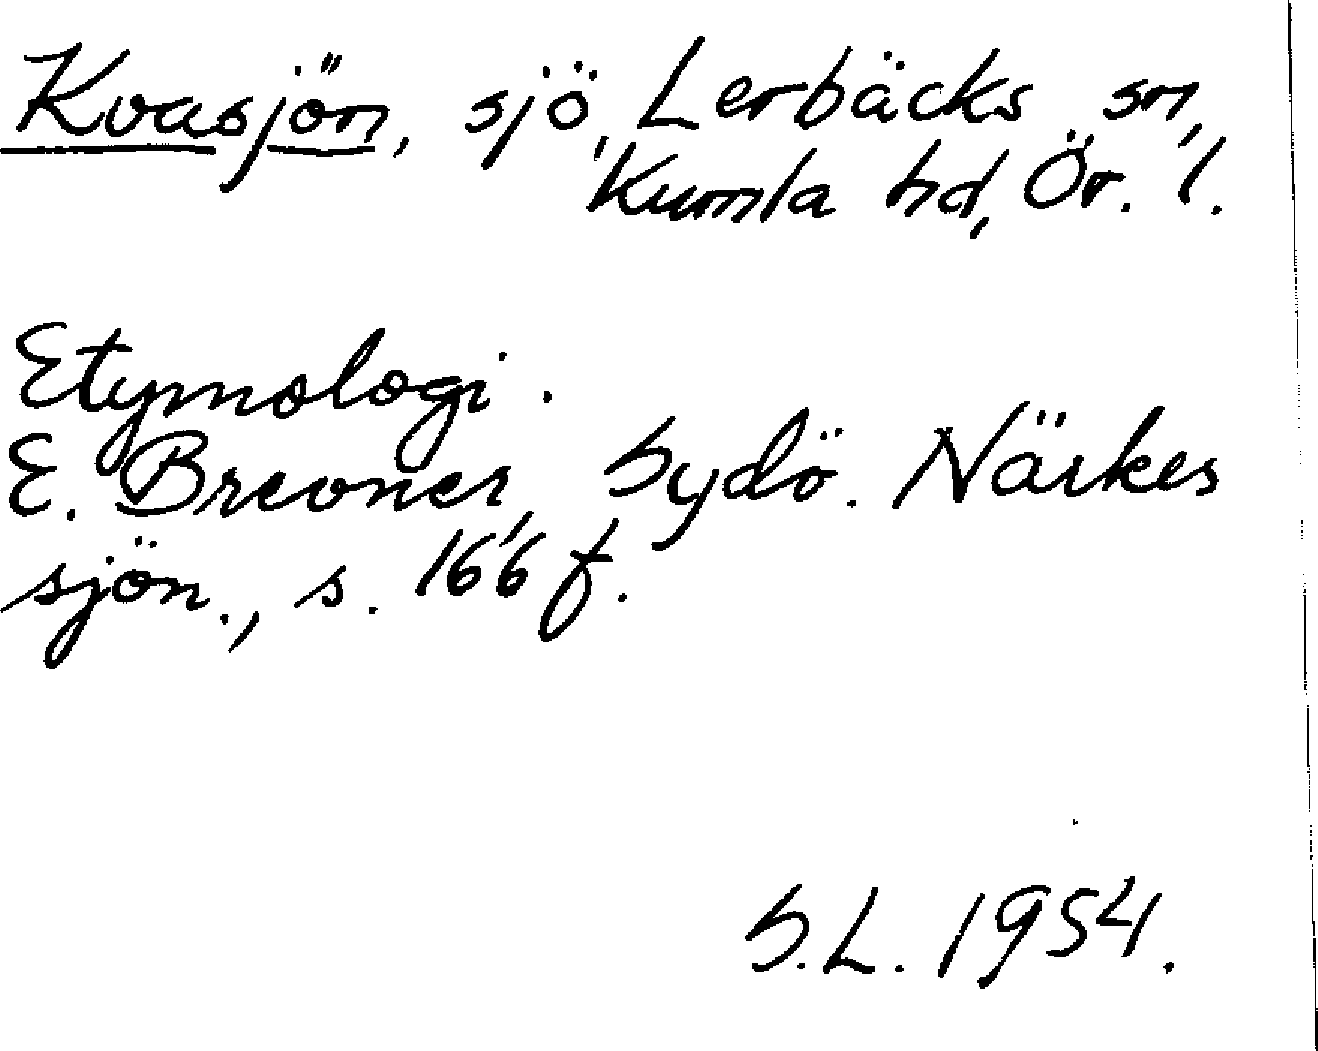 Kvasjön, sjö, Lerbäcks sn,
Kumla hd, Ör. l.
Etymologi.
E. Brevner, Sydö. Närkes
sjön., s. 166 f.
S.L. 1954.